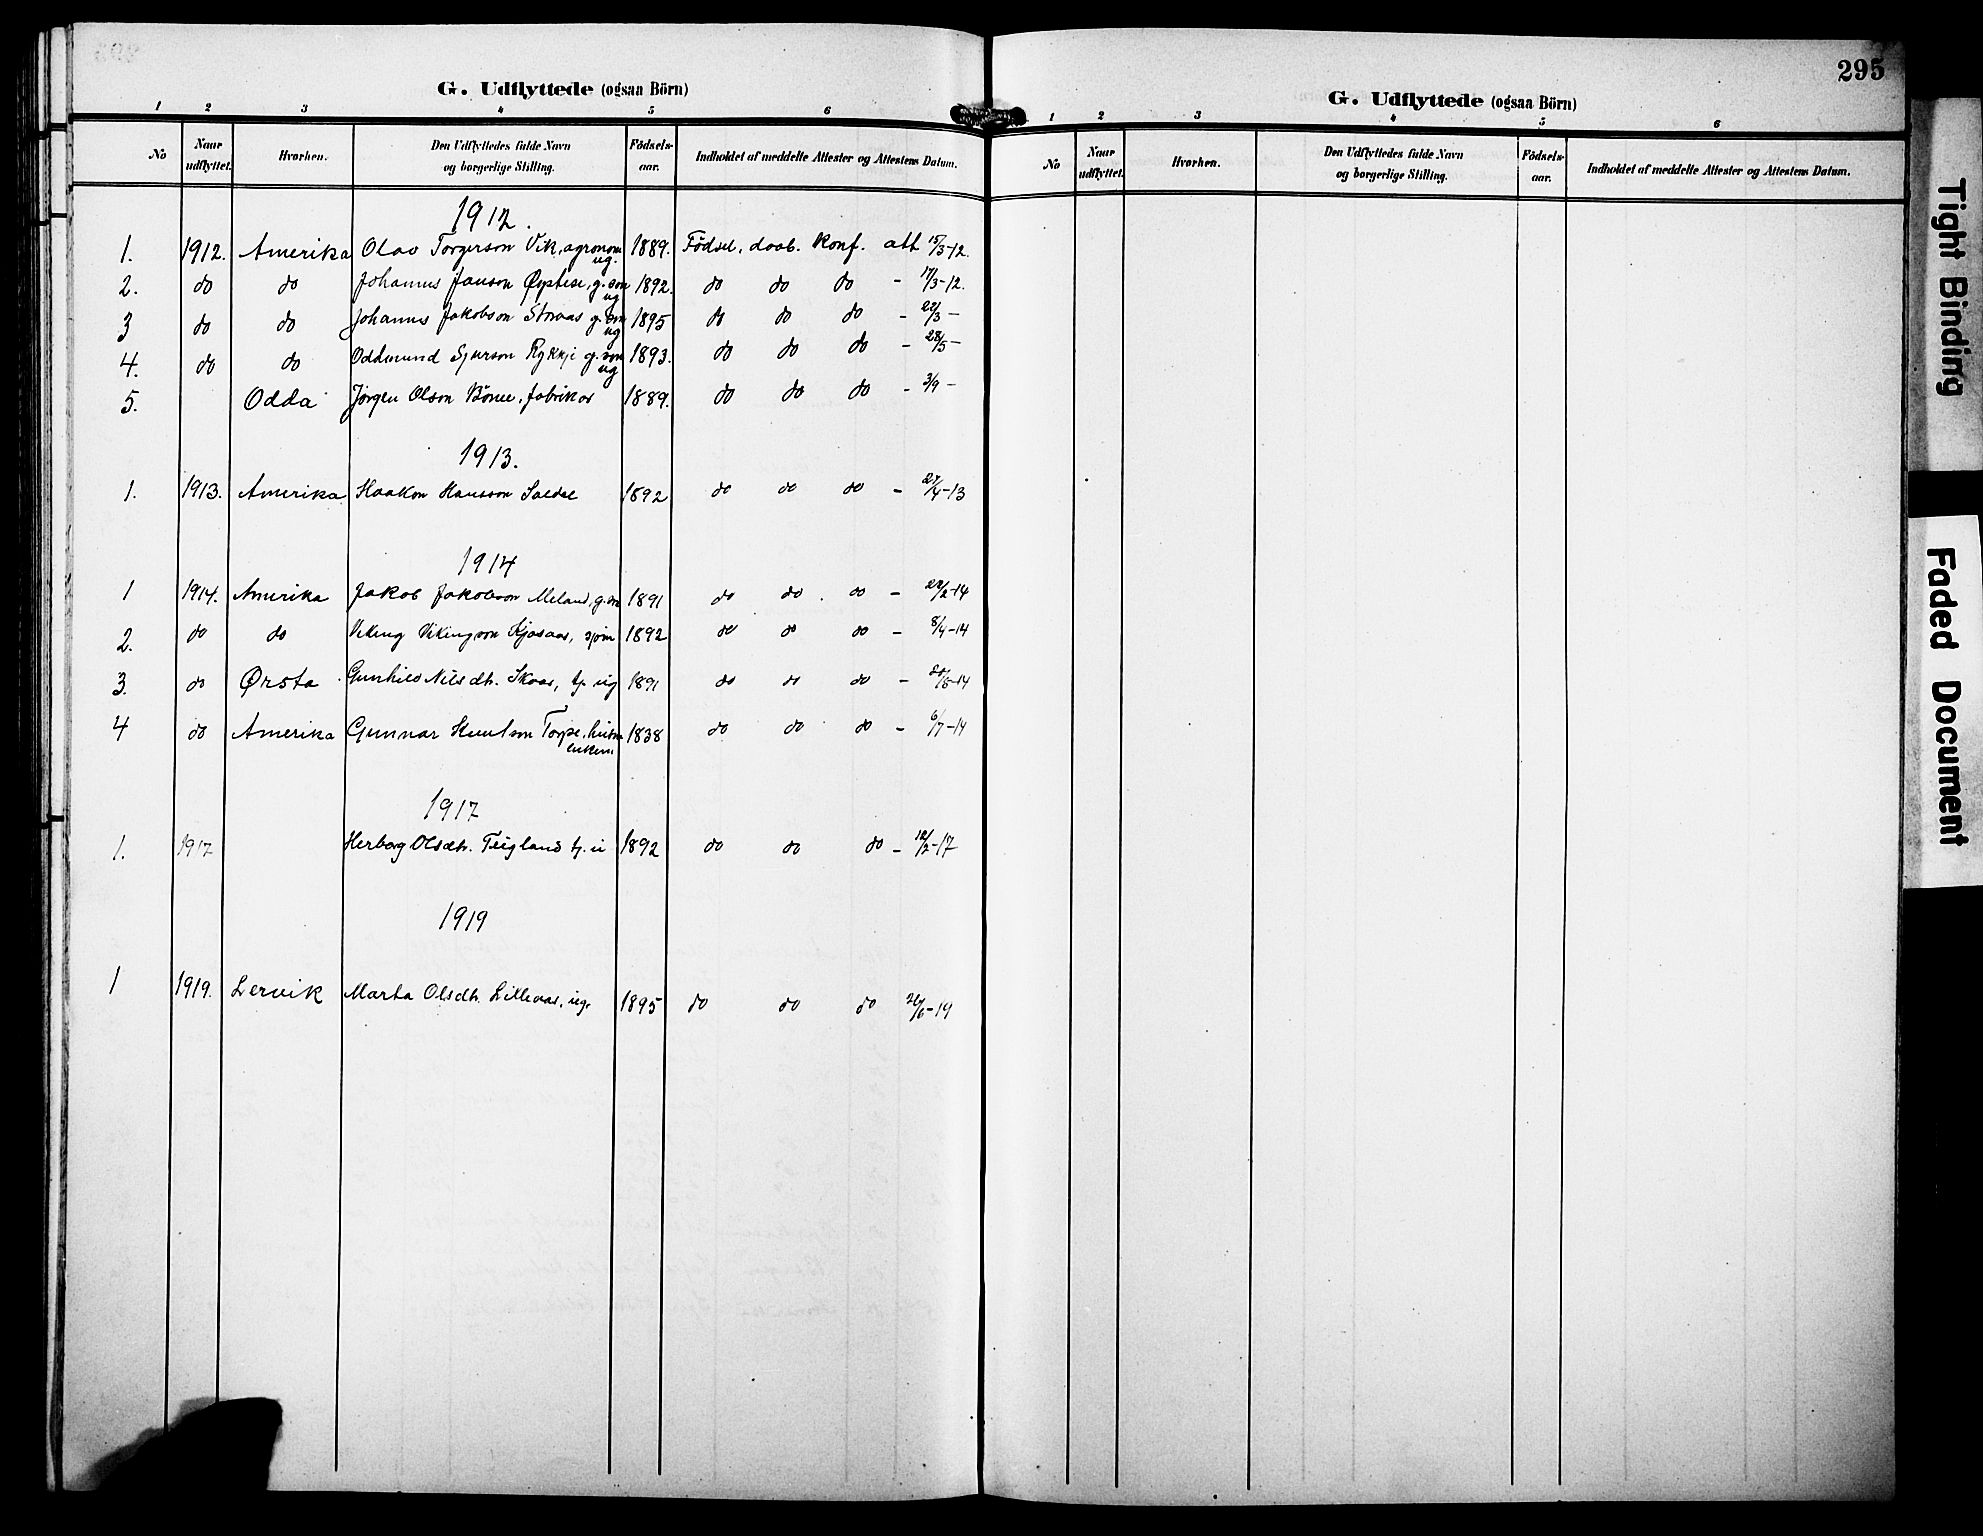 295
G. Udflyttede (ogsaa Börn)
1 2 3 4 5 6
No Naar udflyttet. Hvorhen. Den Udflyttedes fulde Navn og borgerlige Stilling. Födsels-aar. Indholdet af meddelte Attester og Attestens Datum.
1912.
1. 1912. Amerika Olav Torgerson Vik, agronom ug. 1889. Födsel, daab. Konf. att 15/3-12.
2. do do Johannes Janson Øystese, g.son ug 1892. do do do - 17/3-12.
3 do do Johannes Jakobson Steinaas g.son ug 1895 do do do - /3 -
4. do do Oddmund Sjurson Rykkje g.son ug 1893. do do do - 28/5 -
5. Odda Jörgen Olson Börve, fabrikar 1889. do do do - 3/9 -
1913.
1. 1913. Amerika Haakon Hansson Soldal 1892 do do do - /4-13
1914
1 1914. Amerika Jakob Jakobson Meland, g.son 1891 do do do - /2-14
2. do do Viking Vikingson Kjosaas, 1892 do do do - 8/4-14
3. do Ørsta Gunhild Nilsdtr. Skaar, tj. ug 1891 do do do - -14
4 do Amerika Gunnar Knutson Torpe, enkem. 1838 do do do - 6/7-14
1917
1. 1917 Herborg Olsdtr. Teigland tj. u 1892 do do do - 12/2-17
1919
1 1919. Lervik Marta Olsdtr. ug. 1895 do do do /6-19
G. Udflyttede (ogsaa Börn)
1 2 3 4 5 6
No Naar udflyttet. Hvorhen. Den Udflyttedes fulde Navn og borgerlige Stilling. Födsels-aar. Indholdet af meddelte Attester og Attestens Datum.
Tight Binding
Faded Document